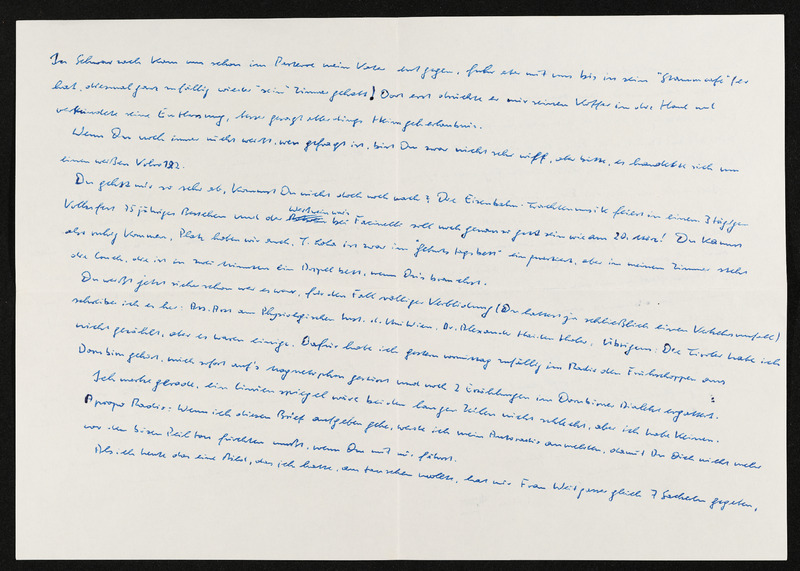 In Schwarzach kam uns schon im Parterre mein Vater entgegen, fuhr aber mit uns bis in sein "Stammcafé" (er
hat, diesmal ganz zufällig wieder "sein" Zimmer gehabt! Dort erst drückte er mir seinen Koffer in die Hand und
verkündete seine Entlassung, besser gesagt allerdings Heimgeherlaubnis.
Wenn Du noch immer nicht weißt, wer gefragt ist, bist Du zwar nicht sehr, aber bitte, es handelte sich um
einen weißen Volvo 122.
Du gehst mir so sehr ab, kommst Du nicht doch noch nach? Die Eisenbahn-Trachtenmusik feiert in einem 3tägigen
Volksfest 75jähriges Bestehen und der Weißwein bei Facinelli soll noch genauso gut sein wie am 20. März! Du kannst
also ruhig kommen, Platz haben wir auch. T. Hoha ist zwar im "Geburtstagsbett" einquartiert, aber in meinem Zimmer steht
die Couch, die ist in zwei Minuten ein Doppelbett, wenn Du's brauchst.
Du weißt jetzt sicher schon wer es war, für den Fall völliger Verblödung (Du hattest ja schließlich einen Verkehrsunfall)
schreibe ich es her: Ass. Arzt am Physiologischen Inst. d. Uni Wien, Dr. Alexander Haider. Übrigens: Die Tiroler habe ich
nicht gezählt, aber es waren einige. Dafür habe ich gestern vormittag zufällig im Radio den Frühschoppen aus
Dornbirn gehört, mich sofort auf's Magnetophon gestürzt und noch 2 Erzählungen im Dornbirner Dialekt ergattert.
Ich merke gerade, ein Linienspiegel wäre bei den langen Zeilen nicht schlecht, aber ich habe keinen.
Apropo Radio: Wenn ich diesen Brief aufgeben gehe, werde ich mein Autoradio anmelden, damit Du Dich nicht mehr
vor den bösen fürchten mußt, wenn Du mit mir fährst.
Als ich heute das eine Bild, das ich hatte, umtauschen wollte, hat mir Frau Weitgasser gleich 7 Sacherln gegeben,